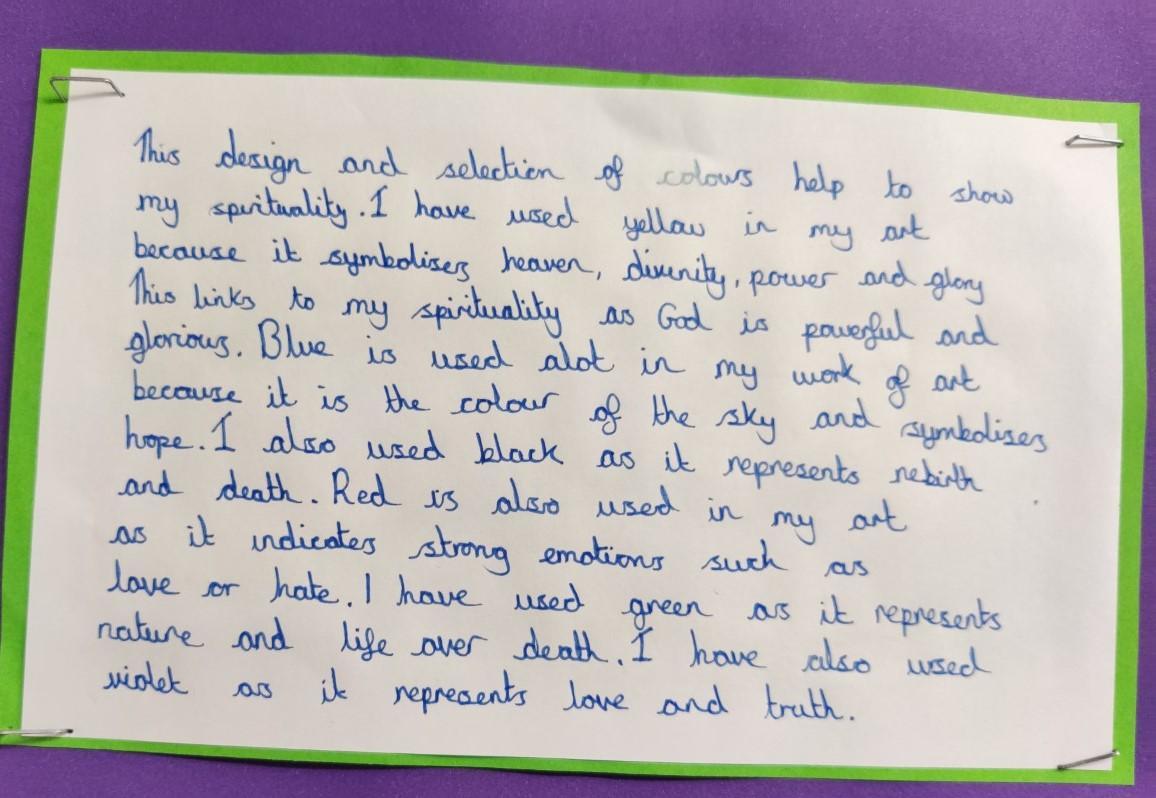 This design and selection of colours help to show
my spirituality. I have used yellow in my art
because it symbolises heaven, divinity, power and glory
This links to my spirituality as God is powerful and
glorious. Blue is used alot in my work of art
because it is the colour of the sky and symbolises
hope. I also used black as it represents rebirth
and death. Red is also used in my art
as it indicates strong emotions such as
love or hate. I have used green as it represents
nature and life over death. I have also used
violet as it represents love and truth.